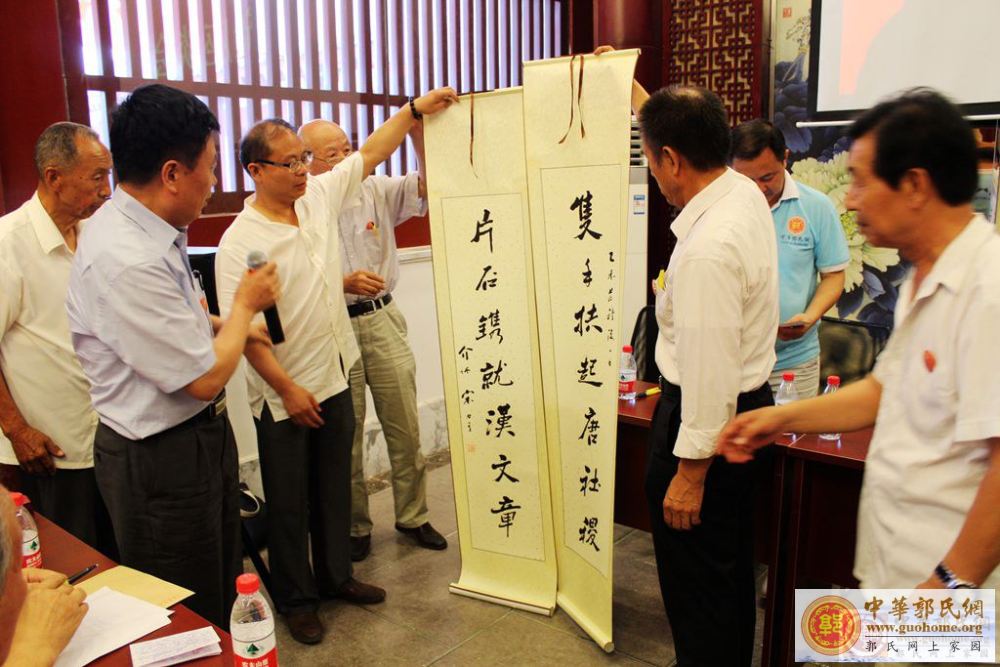 雙手扶起唐社稷
片石鐫就漢文章
中華郭氏網
www.guohome.org
郭氏网上家园